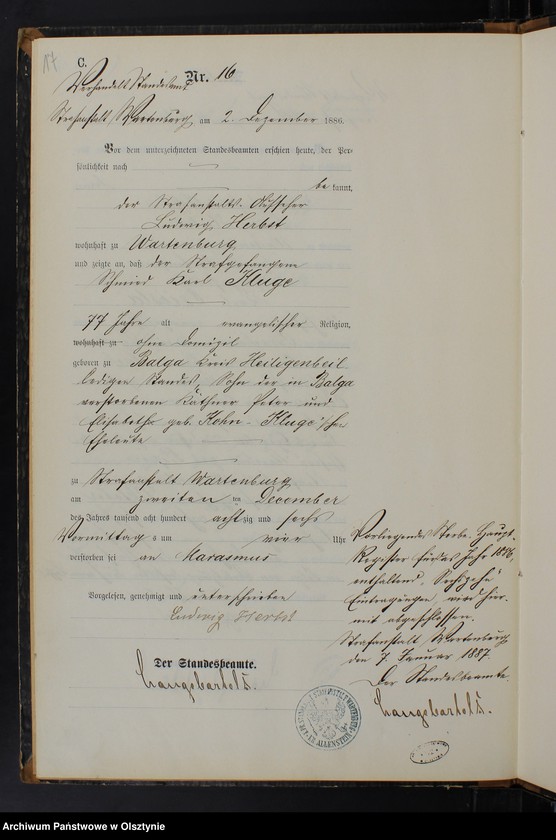 17
C.
Nr. 16
Verhandelt Standesamt
Strafanstalt Wartenburg, am 2. Dezember 1886.
Vor dem unterzeichneten Standesbeamten erschien heute, der Per-
sönlichkeit nach
be kannt,
der Strafanstalts-Aufseher
Ludwig Herbst
wohnhaft zu Wartenburg
und zeigte an, daß der Strafgefangene
Schmied Karl Kluge
77 Jahre alt evangelischer Religion,
wohnhaft zu ohne Domizil
geboren zu Balga Kreis Heiligenbeil
ledigen Standes, Sohn der in Balga
verstorbenen Käthner Peter und
Elisabeth geb. Kohn - Kluge'schen
Eheleute
zu Strafanstalt Wartenburg
am zweiten ten December
des Jahres tausend acht hundert acht zig und sechs
Vormittags um vier Uhr
verstorben sei an Marasmus
Vorgelesen, genehmigt und unterschrieben
Ludwig Herbst
Der Standesbeamte.
Langebartels.
Vorliegendes Sterbe-Haupt-
Register für das Jahr 1886,
enthaltend "Sechszehn"
Eintragungen, wird hier-
mit abgeschlossen.
Strafanstalt Wartenburg
den 7. Januar 1887.
Der Standesbeamte.
Langebartels.
KR. ALLENSTEIN
Archiwum Państwowe w Olsztynie